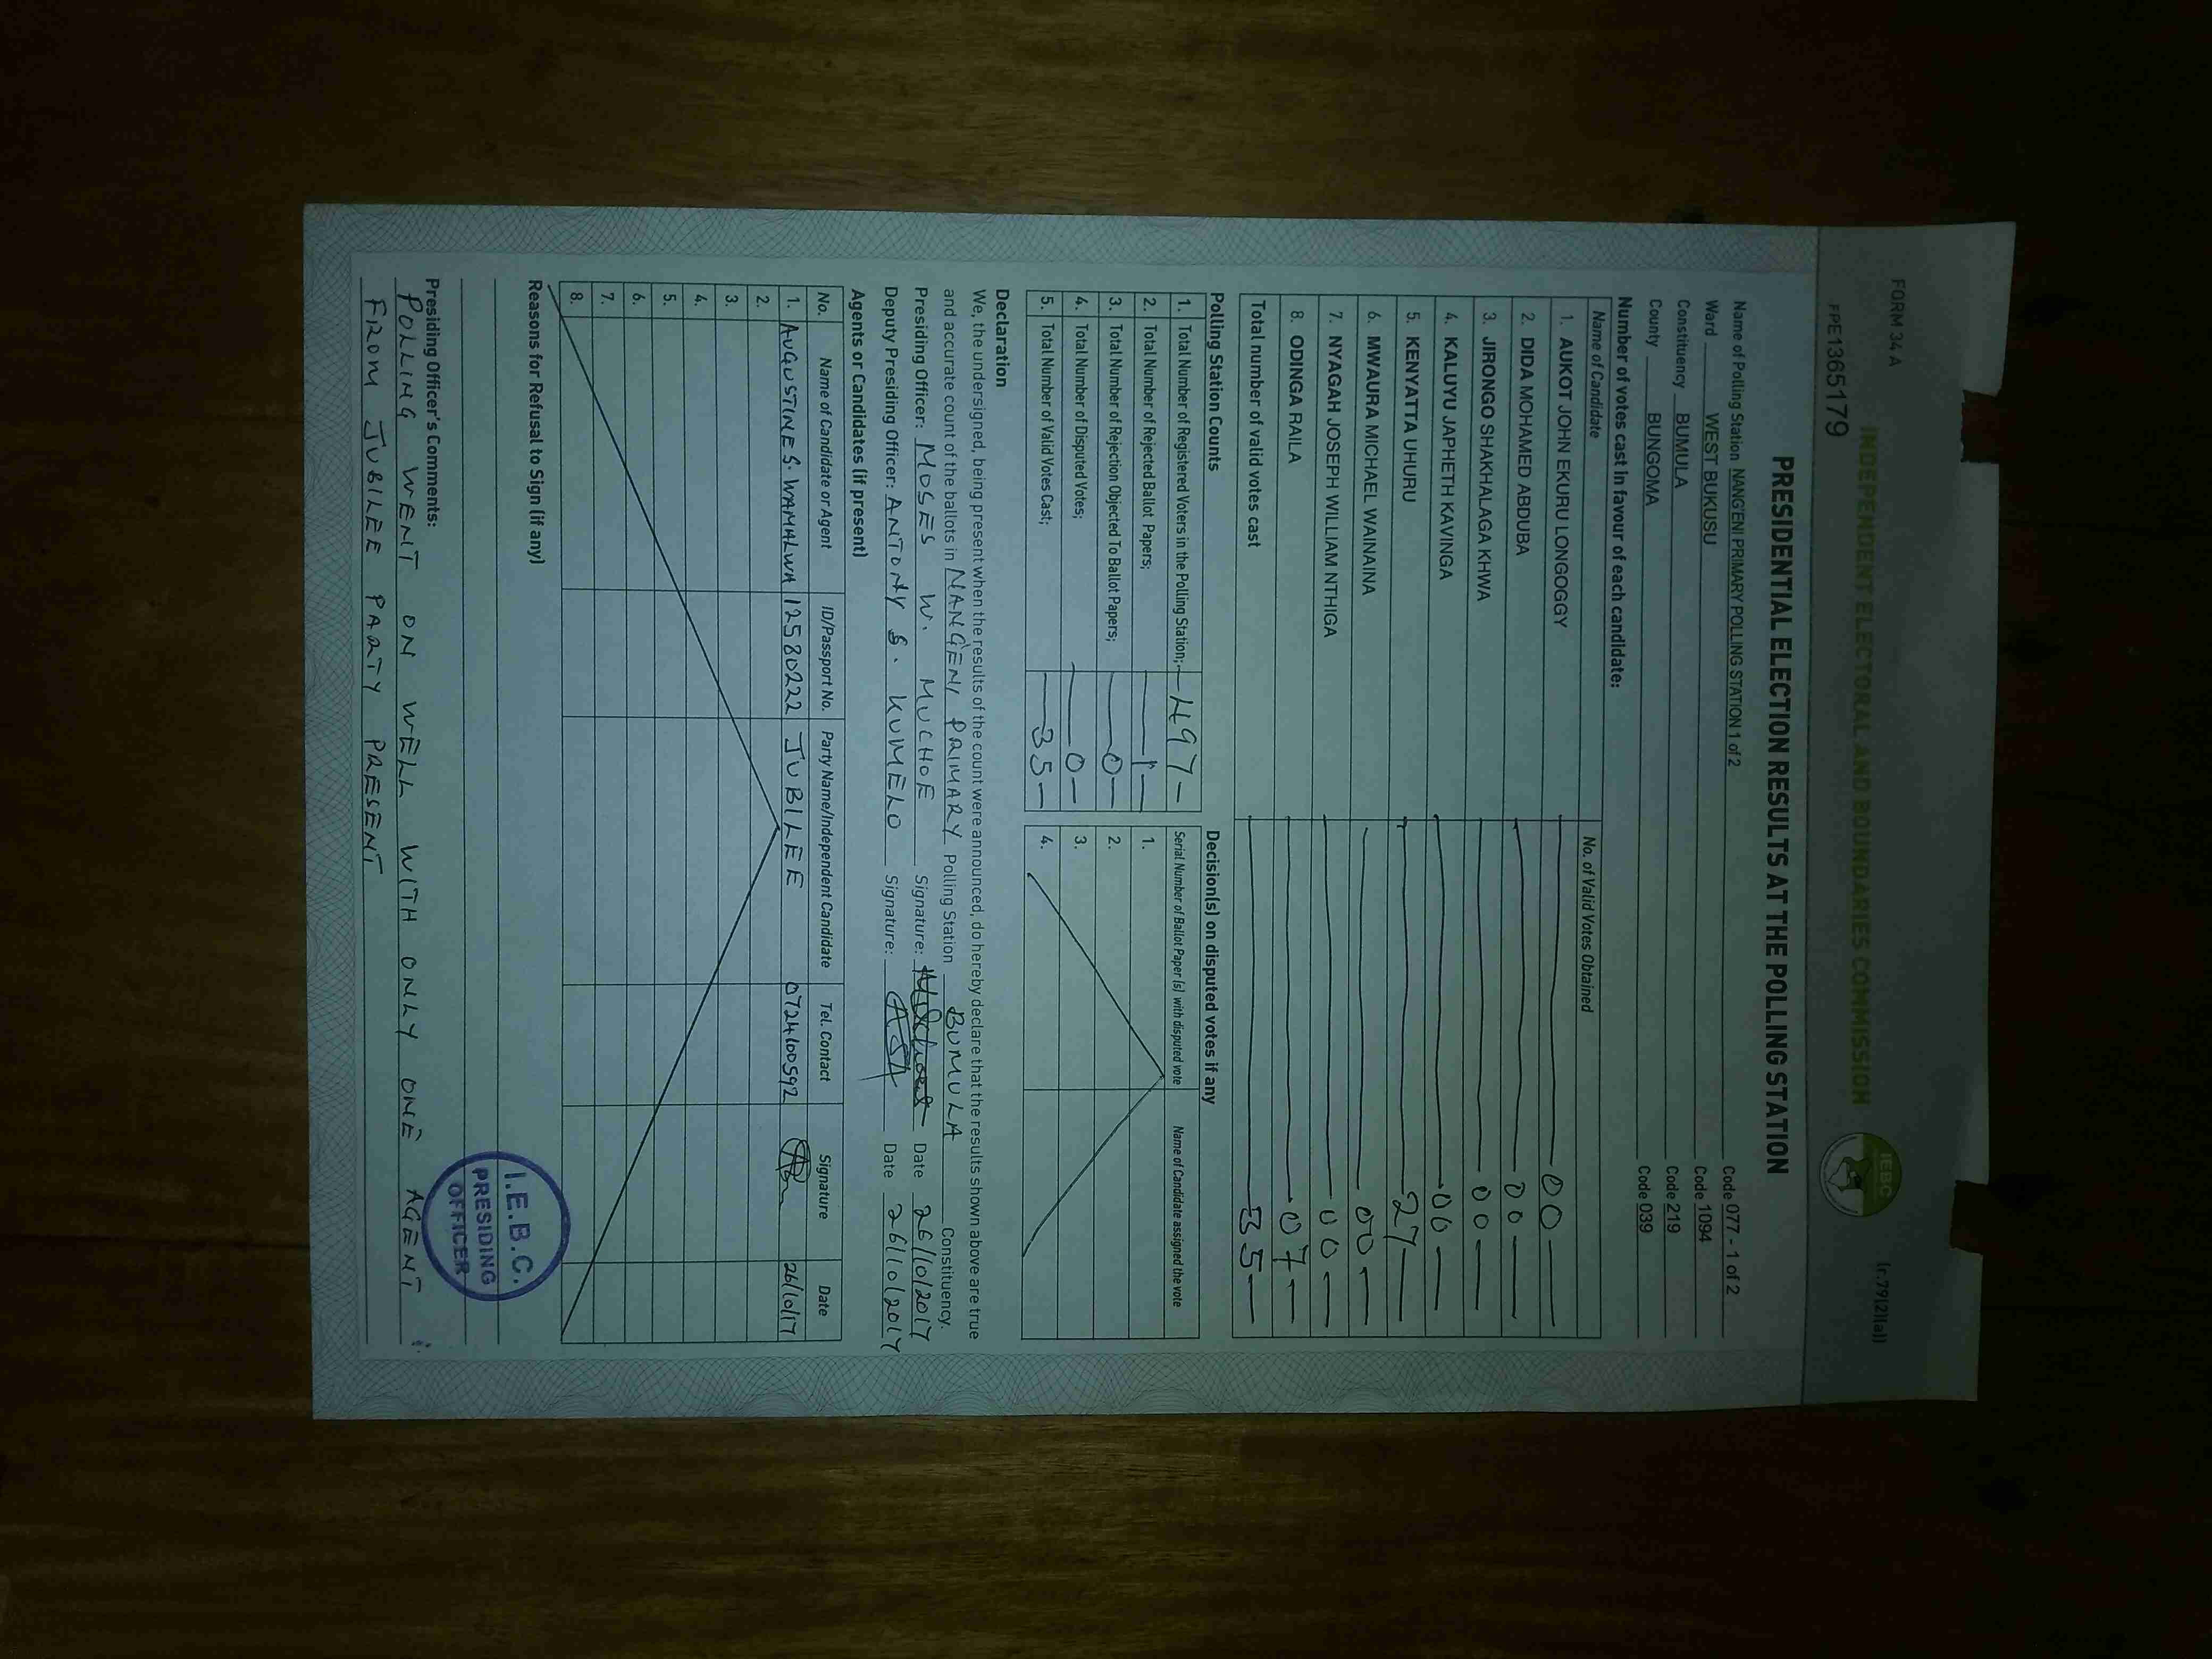 FORM 34 A
(r.79(2)(a))
INDEPENDENT ELECTORAL AND BOUNDARIES COMMISSION
IEBC
FPE1365179
PRESIDENTIAL ELECTION RESULTS AT THE POLLING STATION
Name of Polling Station NANG'ENI PRIMARY POLLING STATION 1 of 2 Code 077 - 1 of 2
Ward WEST BUKUSU Code 1094
Constituency BUMULA Code 219
County BUNGOMA Code 039
Number of votes cast in favour of each candidate:
Name of Candidate No. of Valid Votes Obtained
1. AUKOT JOHN EKURU LONGOGGY 00
2. DIDA MOHAMED ABDUBA 00
3. JIRONGO SHAKHALAGA KHWA 00
4. KALUYU JAPHETH KAVINGA 00
5. KENYATTA UHURU 27
6. MWAURA MICHAEL WAINAINA 00
7. NYAGAH JOSEPH WILLIAM NTHIGA 00
8. ODINGA RAILA 07
Total number of valid votes cast 35
Polling Station Counts
1. Total Number of Registered Voters in the Polling Station; 497
2. Total Number of Rejected Ballot Papers; 1
3. Total Number of Rejection Objected To Ballot Papers; 0
4. Total Number of Disputed Votes; 0
5. Total Number of Valid Votes Cast; 35
Decision(s) on disputed votes if any
Serial Number of Ballot Paper (s) with disputed vote Name of Candidate assigned the vote
1.
2.
3.
4.
Declaration
We, the undersigned, being present when the results of the count were announced, do hereby declare that the results shown above are true
and accurate count of the ballots in NANG'ENI PRIMARY Polling Station BUMULA Constituency.
Presiding Officer: MOSES W. MUCHOE Signature: Date 26/10/2017
Deputy Presiding Officer: ANTONY S. KUMELO Signature: Date 26/10/2017
Agents or Candidates (if present)
No. Name of Candidate or Agent ID/Passport No. Party Name/Independent Candidate Tel. Contact Signature Date
1. AUGUSTINE S. WAMALWA 12580222 JUBILEE 0724100592 26/10/17
2.
3.
4.
5.
6.
7.
8.
Reasons for Refusal to Sign (if any)
I.E.B.C.
PRESIDING
OFFICER
Presiding Officer's Comments:
POLLING WENT ON WELL WITH ONLY ONE AGENT
FROM JUBILEE PARTY PRESENT